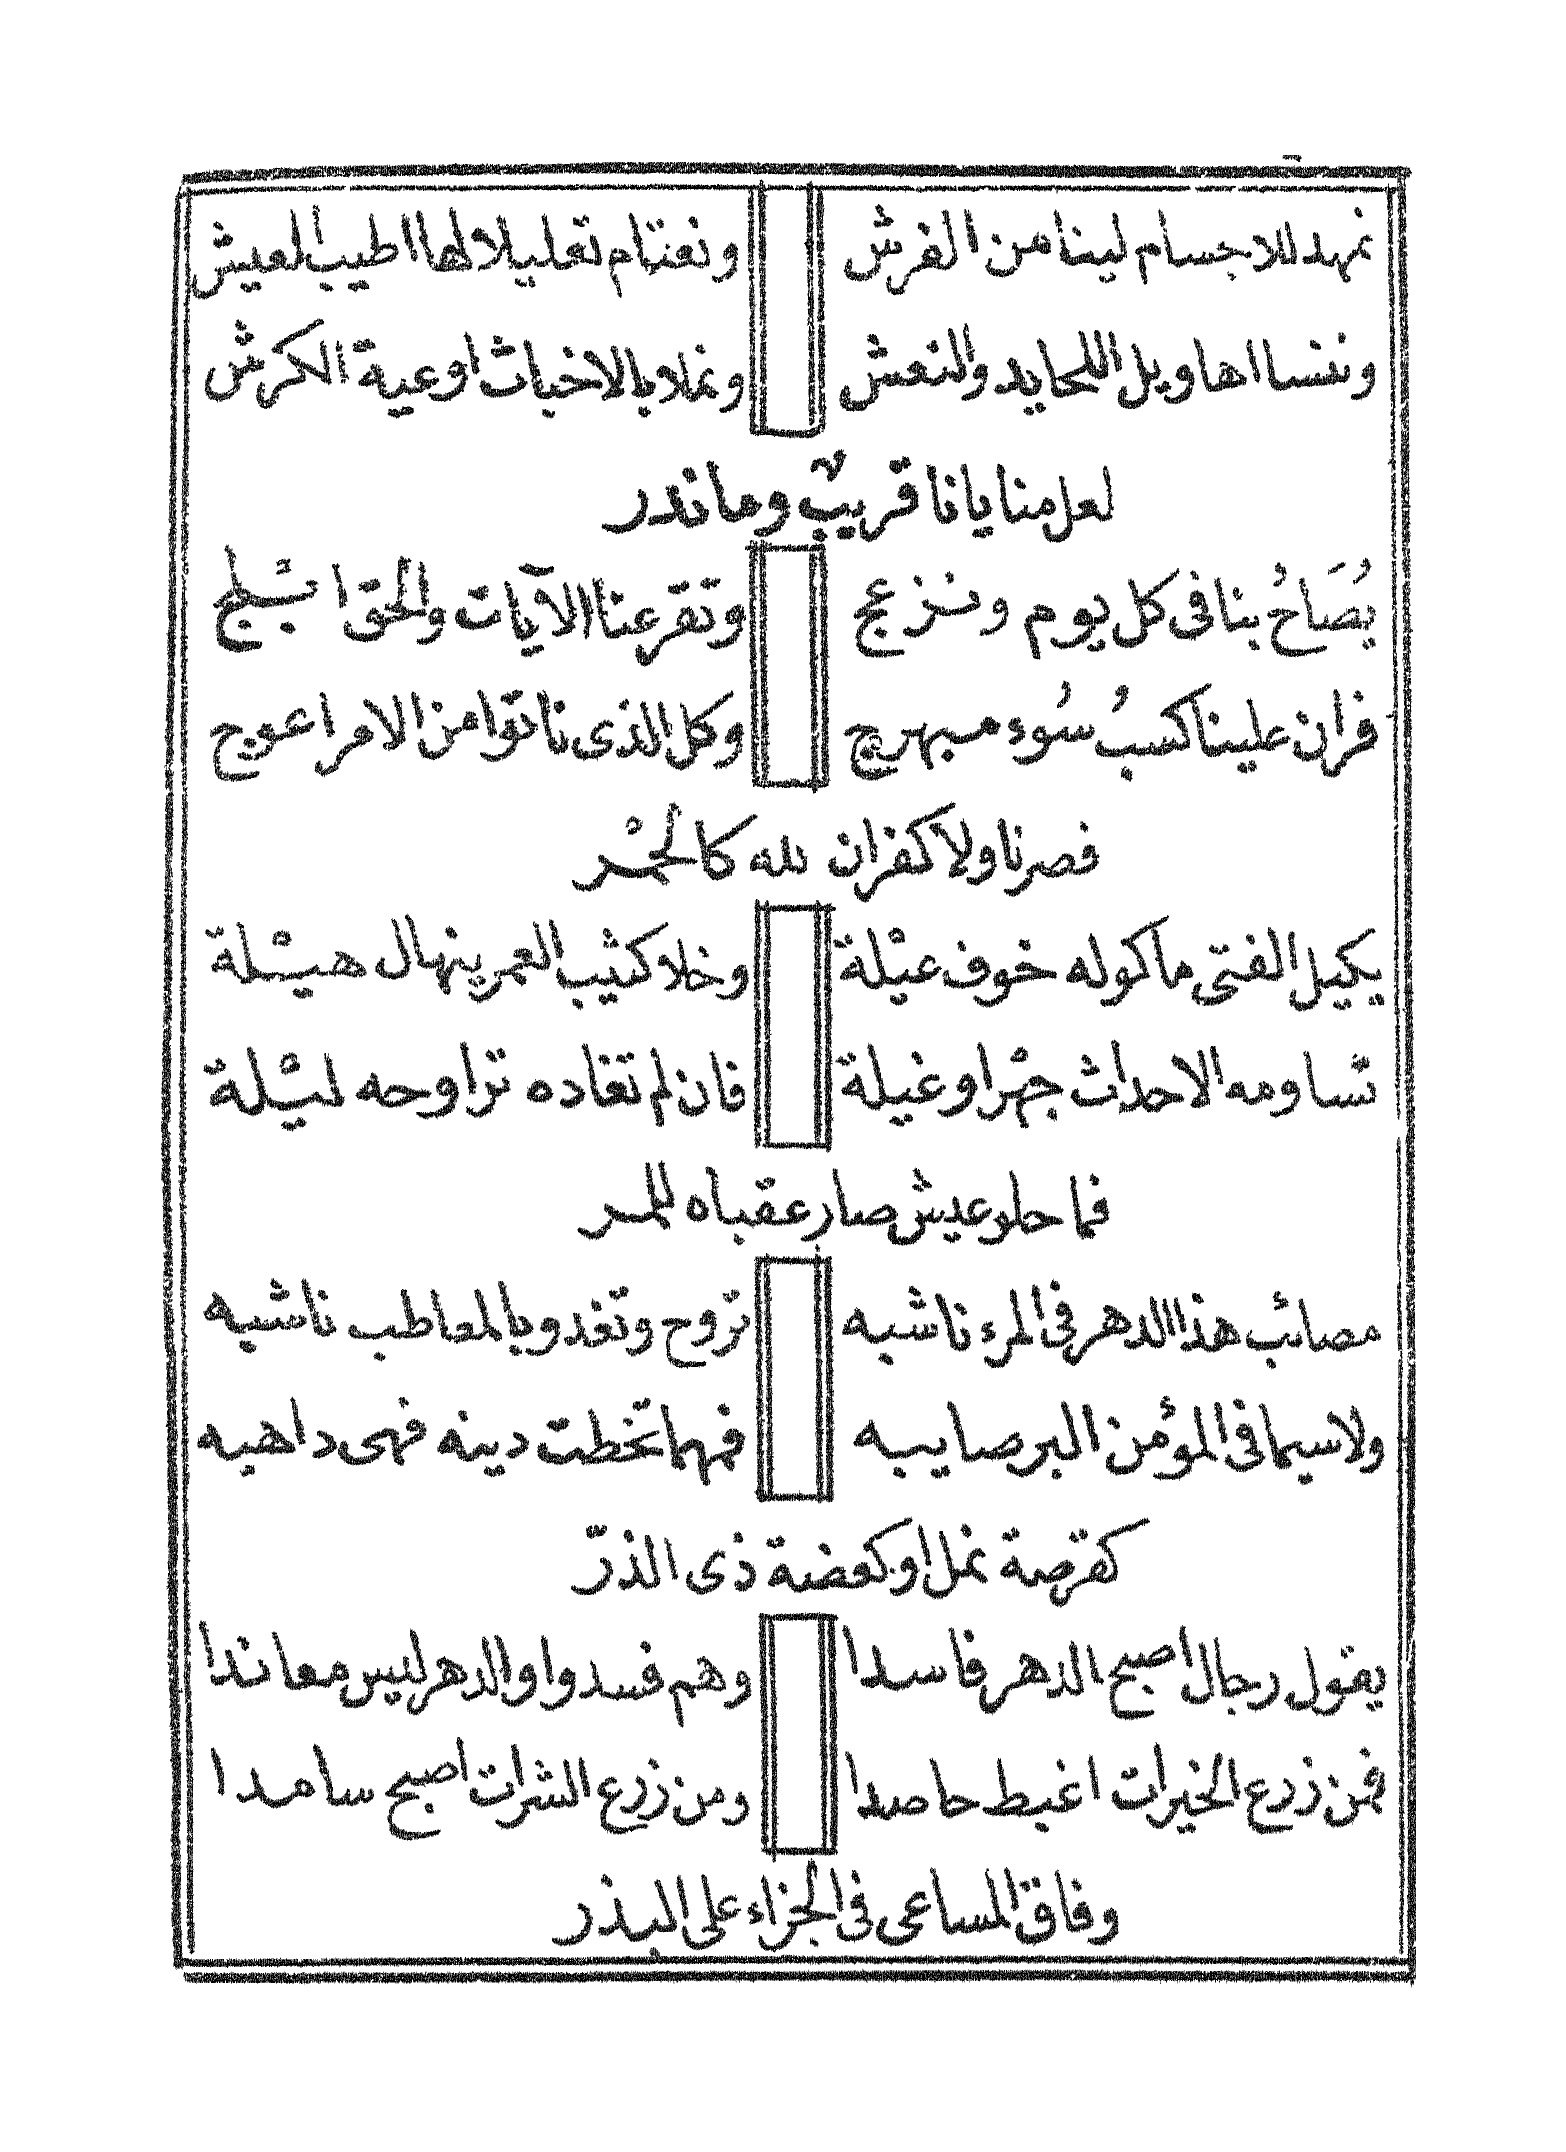 نمهد للاجسام لينا من الفرش ونغتنام تعليلا لها اطيب العيش
وننسا اهاويل اللحايد والنعش ونملا بالاخباث اوعية الكرش
لعل منايانا قريبٌ وما ندر
يُصَاحُ بنا فى كل يوم ونزعج وتقرعنا الآيات والحق ابْلج
فران علينا كسبُ سُوء مبهرج وكل الذى ناتوا من الامر اعوج
فصرنا ولا كفران لله كالحمْر
يكيل الفتى ماكوله خوف عيْلة وخلا كثيب العمر ينهال هيْلة
تساومه الاحداث جهْرا وغيلة فان لم تغاده تراوحه ليْلة
فما حلو عيش صار عقباه للمر
مصائب هذا الدهر فى المرء ناشبه تروح وتغدو بالمعاطب ناشبه
ولاسيما فى المؤمن البر صايبه فمهما تخطت دينه فهى داهيه
كقرصة نمل او كعضة ذى الذرّ
يقول رجال اصبح الدهر فاسدا وهم فسدوا والدهر ليس معاندا
فمن زرع الخيرات اغبط حاصدا ومن زرع الشرات اصبح سامدا
وفاق المساعى فى الجزاء على البذر